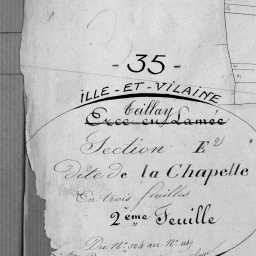 - 35 -
ILLE - ET - VILAINE
Teillay
Ercé en Lamée
Section E²
Dite de la Chapelle
En trois feuilles
2ème Feuille
Du N° 504 au N°